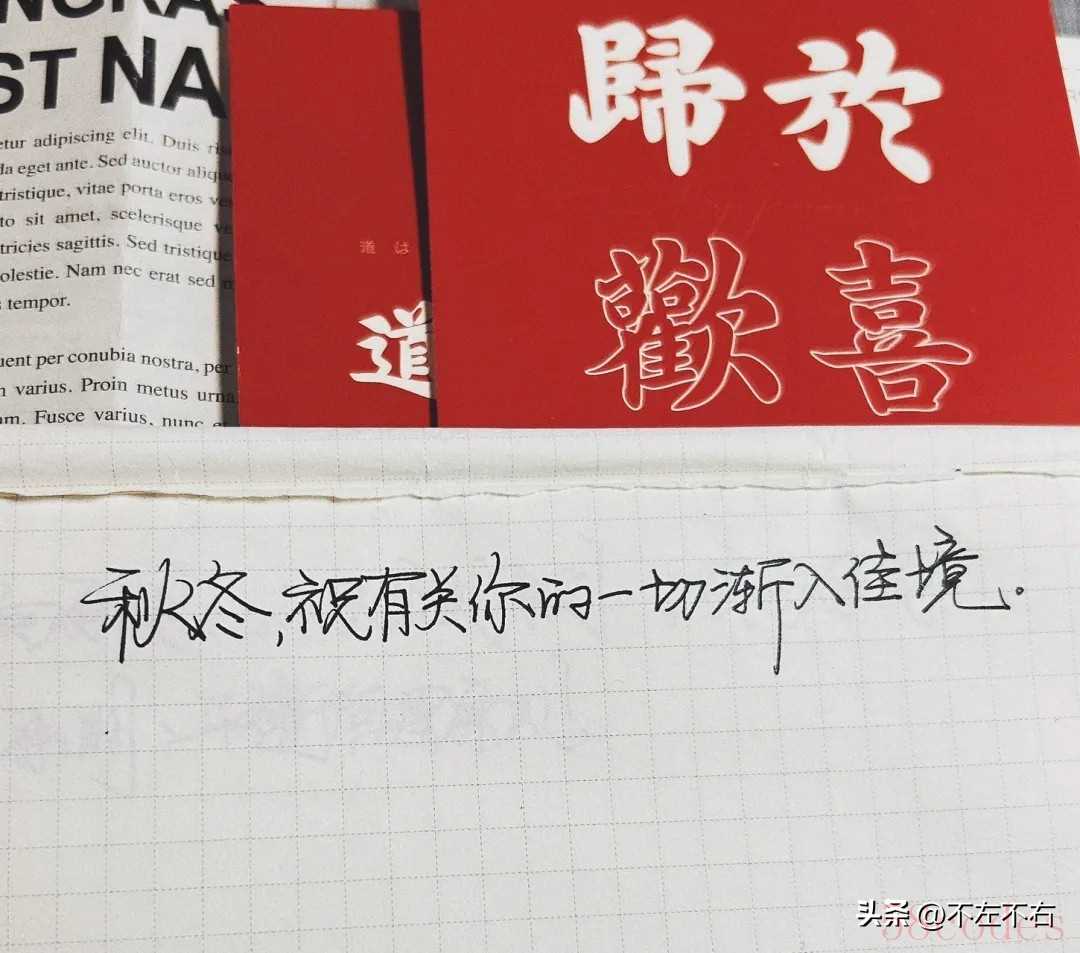 ST NA
etur adipiscing elit. Duis
da eget ante. Sed auctor
tristique, vitae porta eros
to sit amet, scelerisque
tricies sagittis. Sed tristique
olestie. Nam nec erat sed
tempor.
uent per conubia nostra, per
varius. Proin metus urna
am. Fusce varius, nunc
道は
道
歸於
歡喜
秋冬,祝有关你的一切渐入佳境.
头条 @不左不右
88codes